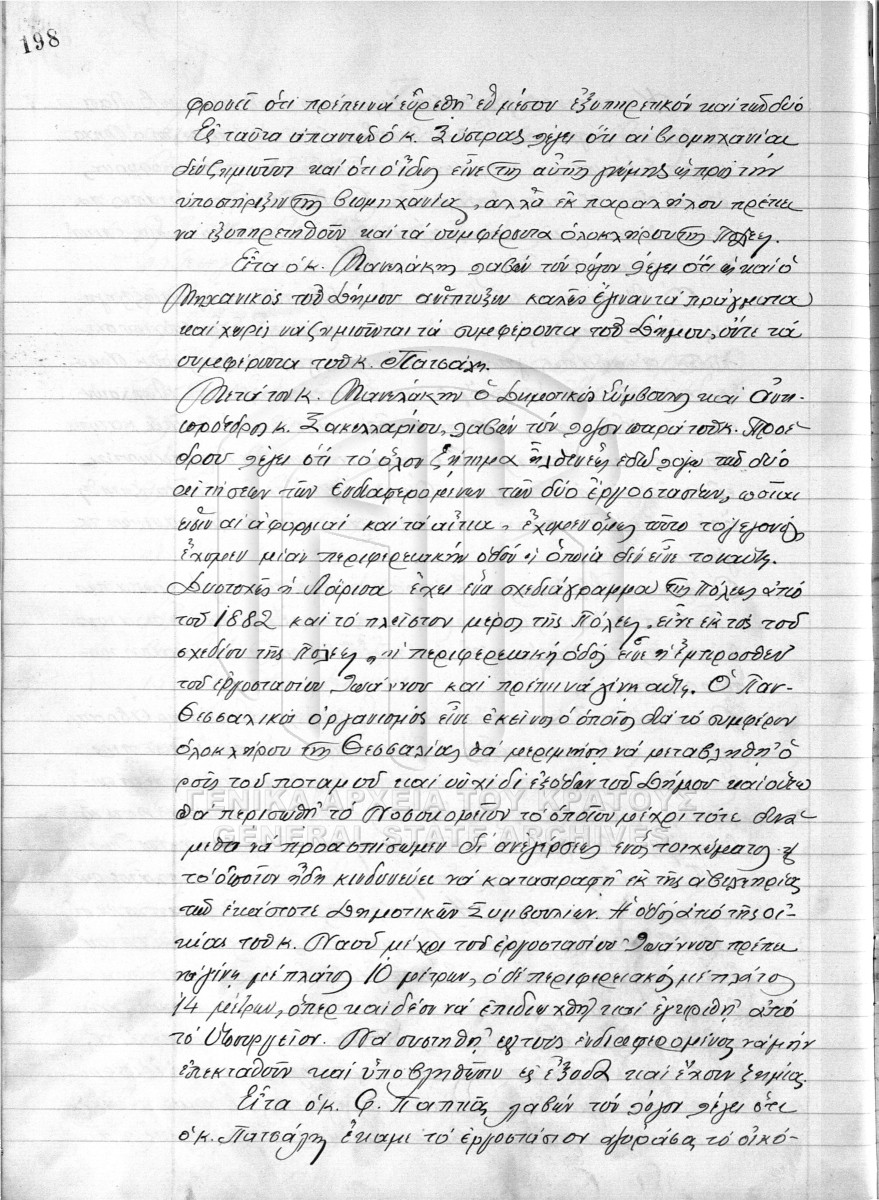 198
φρονεῖ ὅτι πρέπει νά εὑρεθῇ ἕν μέσον ἐξυπηρετικόν καί τῶν δύο
Εἰς ταῦτα ἀπαντῶν ὁ κ. Σύστρας λέγει ὅτι αἱ βιομηχανίαι
δέν ζημιοῦσι καί ὅτι ὁ ἴδιος εἶνε τῆς αὐτῆς γνώμης ὡς πρός τήν
ὑποστήριξιν τῆς βιομηχανίας, ἀλλά ἐκ παραλλήλου πρέπει
νά ἐξυπηρετηθοῦν καί τά συμφέροντα ὁλοκλήρου τῆς Πόλεως.
Εἶτα ὁ κ. Μανωλάκης λαβών τόν λόγον λέγει ὅτι ὡς καί ὁ
Μηχανικός τοῦ Δήμου ἀνέπτυξεν καλῶς ἔγιναν τά πράγματα
καί χωρίς νά ζημιοῦνται τά συμφέροντα τοῦ Δήμου, οὔτε τά
συμφέροντα τοῦ κ. Πατσάλη.
Μετά τόν κ. Μανωλάκην ὁ Δημοτικός Σύμβουλος καί Ἀντι-
πρόεδρος κ. Σακελλαρίου, λαβών τόν λόγον παρά τοῦ κ. Προέ-
δρου λέγει ὅτι τό ὅλον ζήτημα ἐδῶ λόγῳ τῶν δύο
αἰτήσεων τῶν ἐνδιαφερομένων τῶν δύο ἐργοστασίων, ποῖαι
εἶναι αἱ ἀφορμαί καί τά αἴτια, ἔχομεν ὅμως τοῦτο τό γεγονός,
ἔχομεν μίαν περιφερειακήν ὁδόν ἡ ὁποία δέν εἶνε τοιαύτη.
Δυστυχῶς ἡ Λάρισα ἔχει ἕνα σχεδιάγραμμα τῆς Πόλεως ἀπό
τοῦ 1882 καί τό πλεῖστον μέρος τῆς Πόλεως εἶνε ἐκτός τοῦ
σχεδίου τῆς Πόλεως, ἡ περιφερειακή ὁδός εἶνε ἡ ἔμπροσθεν
τοῦ ἐργοστασίου Ἰωάννου καί πρέπει νά γίνῃ αὕτη. Ὁ Παν-
θεσσαλικός ὀργανισμός εἶνε ἐκεῖνος ὁ ὁποῖος διά τό συμφέρον
ὁλοκλήρου τῆς Θεσσαλίας θά μεριμνήσῃ νά μεταβληθῇ ὁ
ροῦς τοῦ ποταμοῦ καί οὐχί δι' ἐξόδων τοῦ Δήμου καί οὕτω
θά περισωθῇ τό Νοσοκομεῖον τό ὁποῖον μέχρι τότε δυνά-
μεθα νά προασπίσωμεν δι' ἀνεγέρσεως ἑνός τοιχώματος
τό ὁποῖον ἤδη κινδυνεύει νά καταστραφῇ ἐκ τῆς ἀβελτηρίας
τῶν ἑκάστοτε Δημοτικῶν Συμβουλίων. Ἡ ὁδός ἀπό τῆς οἰ-
κίας τοῦ κ. Νασοῦ μέχρι τοῦ ἐργοστασίου Ἰωάννου πρέπει
νά γίνῃ μέ πλάτος 10 μέτρων, ὁ δέ περιφερειακός μέ πλάτος
14 μέτρων, ὅπερ καί δέον νά ἐπιδιωχθῇ καί ἐγκριθῇ ἀπό
τό Ὑπουργεῖον. Νά συστηθῇ εἰς τούς ἐνδιαφερομένους νά μήν
ἐπεκταθοῦν καί ὑποβληθῶσιν εἰς ἔξοδα καί ἔχουν ζημίας.
Εἶτα ὁ κ. Φ. Παππᾶς λαβών τόν λόγον λέγει ὅτι
ὁ κ. Πατσάλης ἔκαμε τό ἐργοστάσιον ἀγοράσας τό οἰκό-
ΓΕΝΙΚΑ ΑΡΧΕΙΑ ΤΟΥ ΚΡΑΤΟΥΣ
GENERAL STATE ARCHIVES